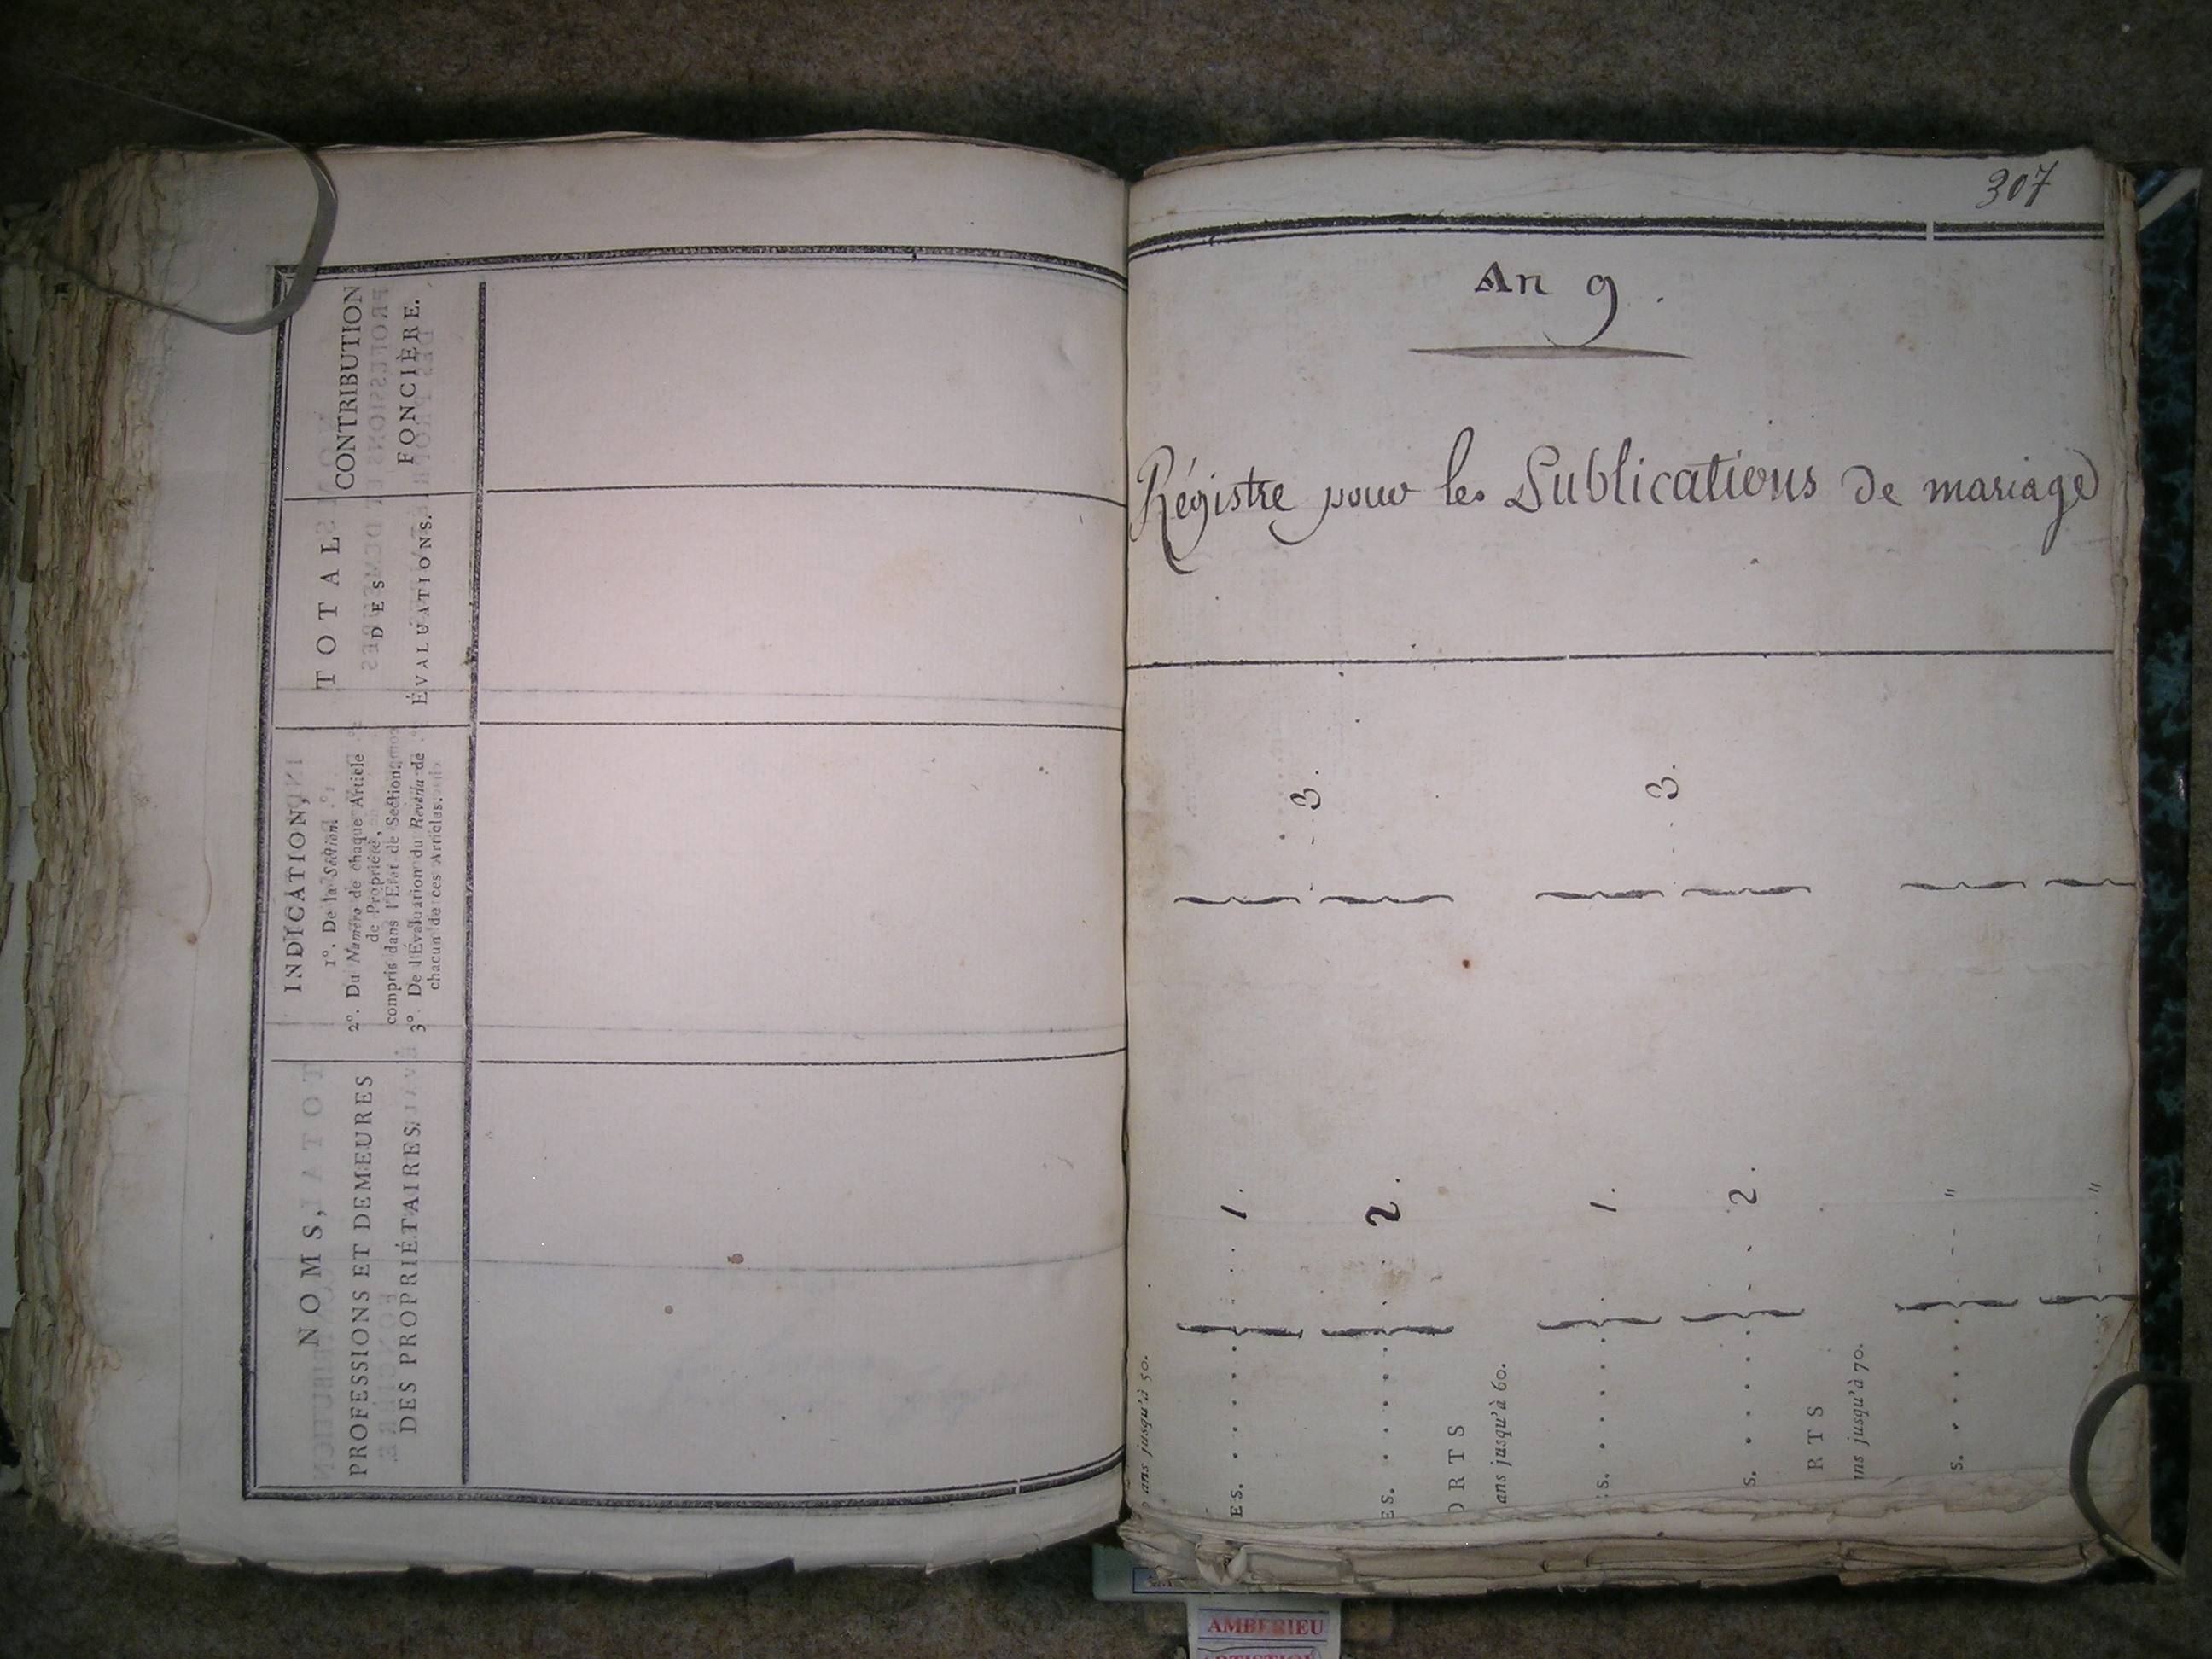 CONTRIBUTION
FONCIÈRE.
TOTAL
DES
ÉVALUATIONS.
INDICATION,
1°. De la Section.
2°. Du Numéro de chaque Article
de Propriété,
compris dans l'Etat de Section.
3°. De l'Évaluation du Revenu de
chacun de ces Articles.
NOMS,
PROFESSIONS ET DEMEURES
DES PROPRIÉTAIRES.
307
An 9.
Régistre pour les Publications de mariage
3.
3.
1.
2.
1.
2.
"
"
ans jusqu'à 50.
ES.
ES.
ORTS
ans jusqu'à 60.
S.
S.
RTS
ans jusqu'à 70.
S.
AMBERIEU